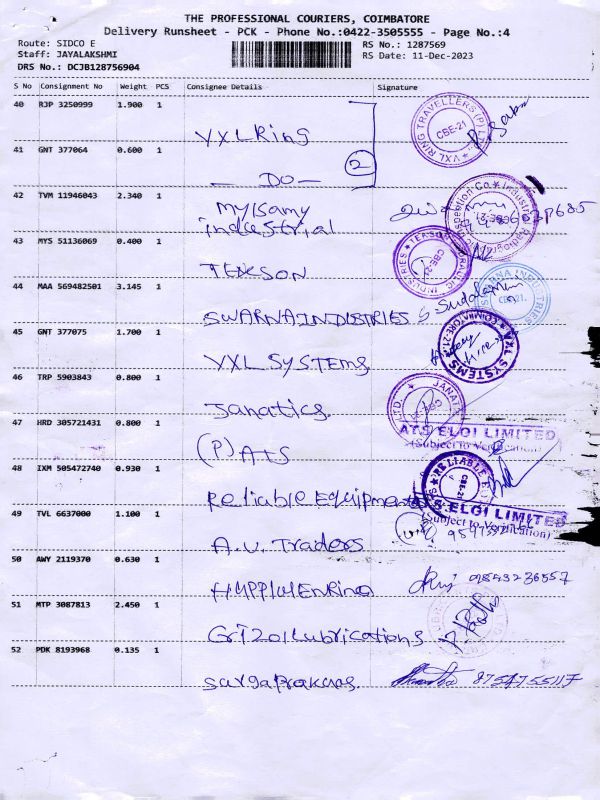 THE PROFESSIONAL COURIERS, COIMBATORE
Delivery Runsheet - PCK - Phone No.:0422-3505555 - Page No.:4
Route: SIDCO E
RS No.: 1287569
Staff: JAYALAKSHMI
RS Date: 11-Dec-2023
DRS No.: DCJB128756904
S No Consignment No Weight PCS Consignee Details Signature
40 RJP 3250999 1.900 1
VXL Ring
VXL RING TRAVELLERS (P) L
CBE-21
41 GNT 377064 0.600 1
- DO -
2
42 TVM 11946043 2.340 1
Mylsamy
industrial
43 MYS 51136069 0.400 1
TEXSON
CBE-21
44 MAA 569482501 3.145 1
SWARNA INDUSTRIES
45 GNT 377075 1.700 1
VXL SYSTEMS
VXL SYSTEMS
46 TRP 5903843 0.800 1
Janatics.
JANAT
47 HRD 305721431 0.800 1
(P) ATS
ATS ELGI LIMITED
(Subject to Verification)
48 IXM 505472740 0.930 1
Reliable Equipments
RELIABLE E
49 TVL 6637000 1.100 1
A.V. Traders
S ELGI LIMITED
(Subject to Verification)
50 AWY 2119370 0.630 1
9843236557
51 MTP 3087813 2.450 1
Grizol Lubrications
52 PDK 8193968 0.135 1
8754755117